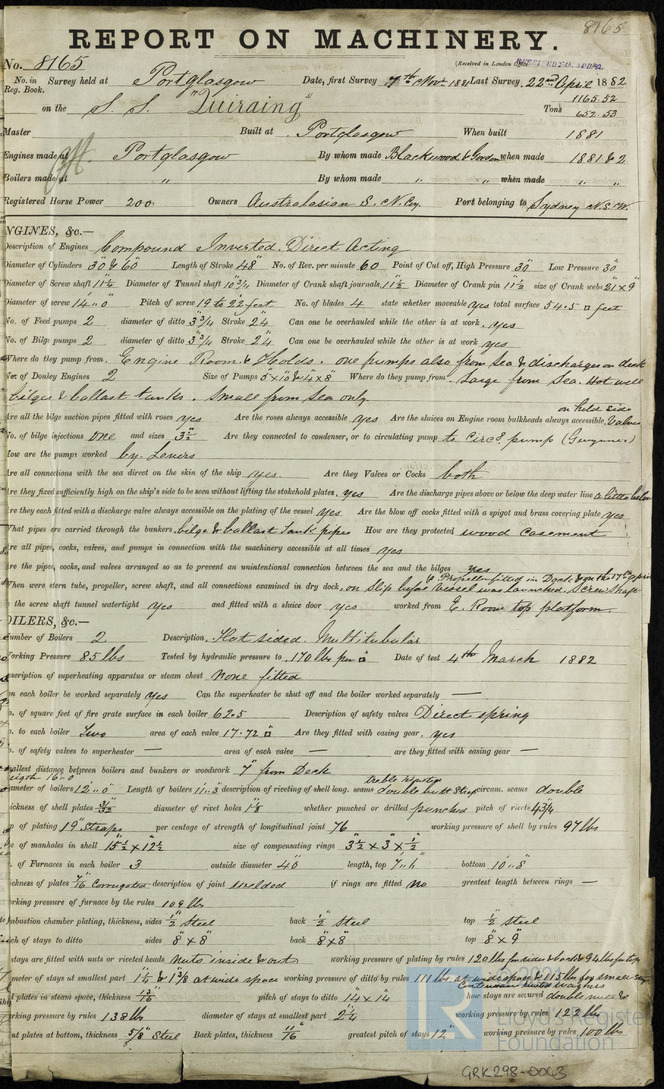 8165
REPORT ON MACHINERY.
No. 8165
(Received in London Office
No. in Survey held at Portglasgow Date, first Survey 7th Novr. 1881 Last Survey 22nd April 1882
Reg. Book.
on the S. S. "Quiraing" Tons 1165.52
652.53
Master Built at Portglasgow When built 1881
Engines made at Portglasgow By whom made Blackwood & Gordon when made 1881 & 2
Boilers made at " By whom made " when made "
Registered Horse Power 200 Owners Australasian S. N. Coy. Port belonging to Sydney N.S.W.
NGINES, &c.—
Description of Engines Compound Inverted Direct Acting
Diameter of Cylinders 30" & 60" Length of Stroke 48" No. of Rev. per minute 60 Point of Cut off, High Pressure 30" Low Pressure 30"
Diameter of Screw shaft 11½" Diameter of Tunnel shaft 10¾" Diameter of Crank shaft journals 11½" Diameter of Crank pin 11½" size of Crank webs 21" × 9"
Diameter of screw 14'..0" Pitch of screw 19 to 22 feet No. of blades 4 state whether moveable yes total surface 54.5 □ feet
No. of Feed pumps 2 diameter of ditto 3¾" Stroke 24" Can one be overhauled while the other is at work yes
No. of Bilge pumps 2 diameter of ditto 3¾" Stroke 24" Can one be overhauled while the other is at work yes
Where do they pump from Engine Room & Holds. one pumps also from sea & discharges on deck
No. of Donkey Engines 2 Size of Pumps 5" × 10" & 4" × 8" Where do they pump from Large from Sea. Hot well
bilges & ballast tanks. Small from sea only.
Are all the bilge suction pipes fitted with roses yes Are the roses always accessible yes Are the sluices on Engine room bulkheads always accessible on hold side Valves
No. of bilge injections One and sizes 3½" Are they connected to condenser, or to circulating pump to Circg. pump (Gwynne)
How are the pumps worked by Levers
Are all connections with the sea direct on the skin of the ship yes Are they Valves or Cocks both
Are they fixed sufficiently high on the ship's side to be seen without lifting the stokehold plates yes Are the discharge pipes above or below the deep water line a little below
Are they each fitted with a discharge valve always accessible on the plating of the vessel yes Are the blow off cocks fitted with a spigot and brass covering plate yes
What pipes are carried through the bunkers bilge & ballast tank pipes How are they protected wood casement
Are all pipes, cocks, valves, and pumps in connection with the machinery accessible at all times yes
Are the pipes, cocks, and valves arranged so as to prevent an unintentional connection between the sea and the bilges yes
When were stern tube, propeller, screw shaft, and all connections examined in dry dock, on slip before vessel was launched. Screw Shaft & Propeller fitted in Dock on the 17th April
the screw shaft tunnel watertight yes and fitted with a sluice door yes worked from E. Room top platform.
OILERS, &c.—
umber of Boilers 2 Description Flat sided. Multitubular
orking Pressure 85 lbs Tested by hydraulic pressure to 170 lbs per □" Date of test 4th March 1882
escription of superheating apparatus or steam chest none fitted
n each boiler be worked separately yes Can the superheater be shut off and the boiler worked separately —
. of square feet of fire grate surface in each boiler 62.5 Description of safety valves Direct spring
. to each boiler Two area of each valve 17.72 □" Are they fitted with easing gear yes
. of safety valves to superheater — area of each valve — are they fitted with easing gear —
allest distance between boilers and bunkers or woodwork 7" from Deck
ameter of boilers 12'..0" Length of boilers 11'..3" description of riveting of shell long. seams treble riveted double butt Strap circum. seams double
ickness of shell plates diameter of rivet holes 1⅛" whether punched or drilled punched pitch of rivets 4¾"
of plating 19" Straps per centage of strength of longitudinal joint 76 working pressure of shell by rules 97 lbs
e of manholes in shell 15½" × 12½" size of compensating rings 3½" × 3" × ½"
. of Furnaces in each boiler 3 outside diameter 40" length, top 7'..6" bottom 10'..8"
ickness of plates 7/16" Corrugated description of joint welded if rings are fitted No greatest length between rings —
orking pressure of furnace by the rules 109 lbs
mbustion chamber plating, thickness, sides ½" Steel back ½" Steel top ½" Steel
ch of stays to ditto sides 8" × 8" back 8" × 8" top 8" × 9"
stays are fitted with nuts or riveted heads Nuts inside & out working pressure of plating by rules 120 lbs for sides & back & 94 lbs for top
meter of stays at smallest part 1¼" & 1⅜" at wide space working pressure of ditto by rules 111 lbs at wide space & 115 lbs for small
plates in steam space, thickness 13/16" pitch of stays to ditto 14" × 14" how stays are secured double nuts &
orking pressure by rules 138 lbs diameter of stays at smallest part 2¼" working pressure by rules 122 lbs
nt plates at bottom, thickness 5/8" Steel Back plates, thickness 11/16" greatest pitch of stays 12" working pressure by rules 100 lbs
LR Lloyd's Register Foundation
GRK298-0063